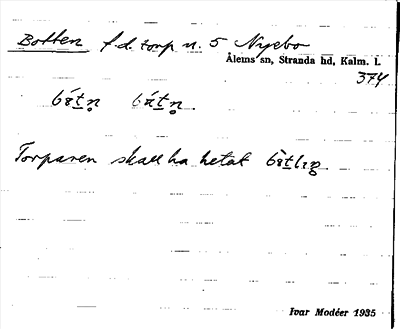 Botten f.d. torp n. 5 Nyebo
Ålems sn, Stranda hd, Kalm. l.
374
Torparen skall ha hetat
Ivar Modéer 1935